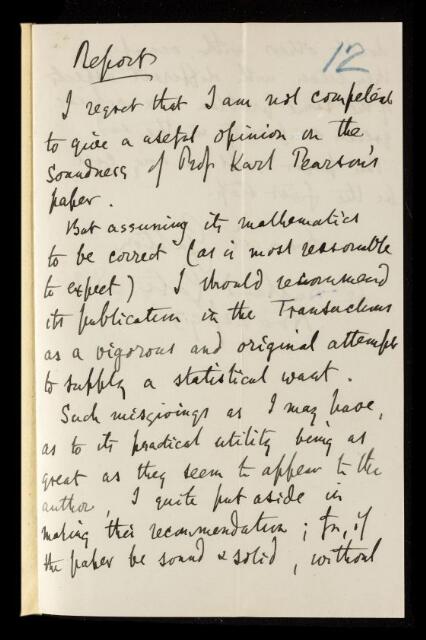 Report
12
I regret that I am not competent
to give a useful opinion on the
soundness of Prof Karl Pearson's
paper.
But assuming its mathematics
to be correct (as is most reasonable
to expect) I should recommend
its publication in the Transactions
as a vigorous and original attempt
to supply a statistical want.
Such misgivings as I may have,
as to its practical utility being as
great as they seem to appear to the
author, I quite put aside in
making this recommendation; for, if
the paper be sound & solid, without